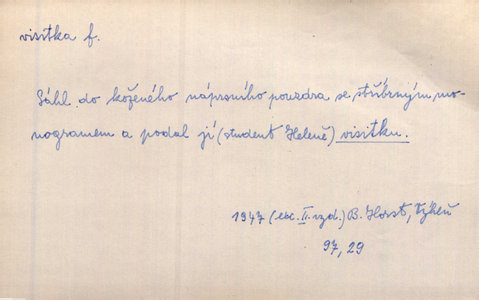 visitka f.
Sáhl do koženého náprsního pouzdra se stříbrným mo-
nogramem a podal jí (student Heleně) visitku.
1947 (lic. II. vyd.) B. Horst, Výkleň
97, 29